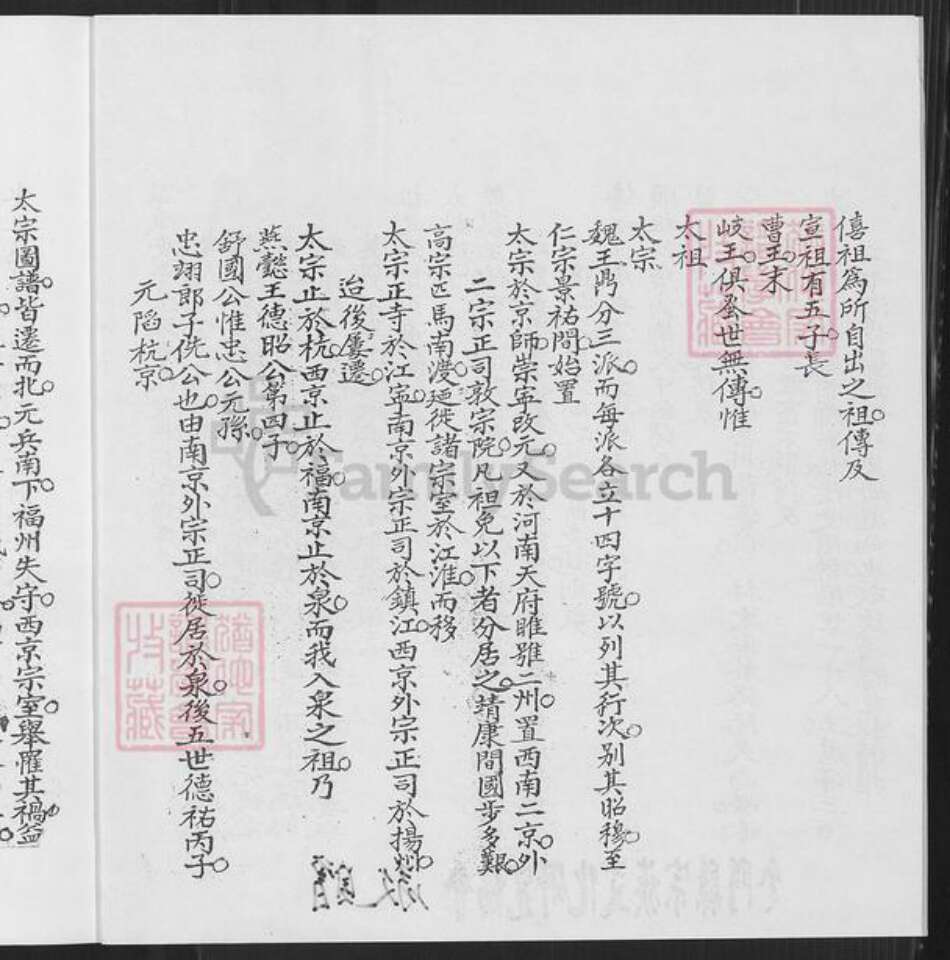 僖祖為所自出之祖傳及
宣祖有五子長
曹王末
岐王俱蚤世無傳惟
太祖
太宗
魏王鼎分三派而每派各立十四字號以列其行次別其昭穆至
仁宗景祐間始置
太宗於京師崇寍改元又於河南天府睢雒二州置西南二京外
二宗正司敦宗院凡袒免以下者分居之靖康間國步多艱
高宗匹馬南渡廼徙諸宗室於江淮而移
太宗正寺於江寍南京外宗正司於鎮江西京外宗正司於揚州
迨後屢遷
太宗止於杭西京止於福南京止於泉而我入泉之祖乃
燕懿王德昭公第四子
舒國公惟忠公元孫
忠翊郎子侁公也由南京外宗正司徙居於泉後五世德祐丙子
元陷杭京
太宗圖譜皆遷而北元兵南下福州失守西京宗室舉罹其禍益
FamilySearch